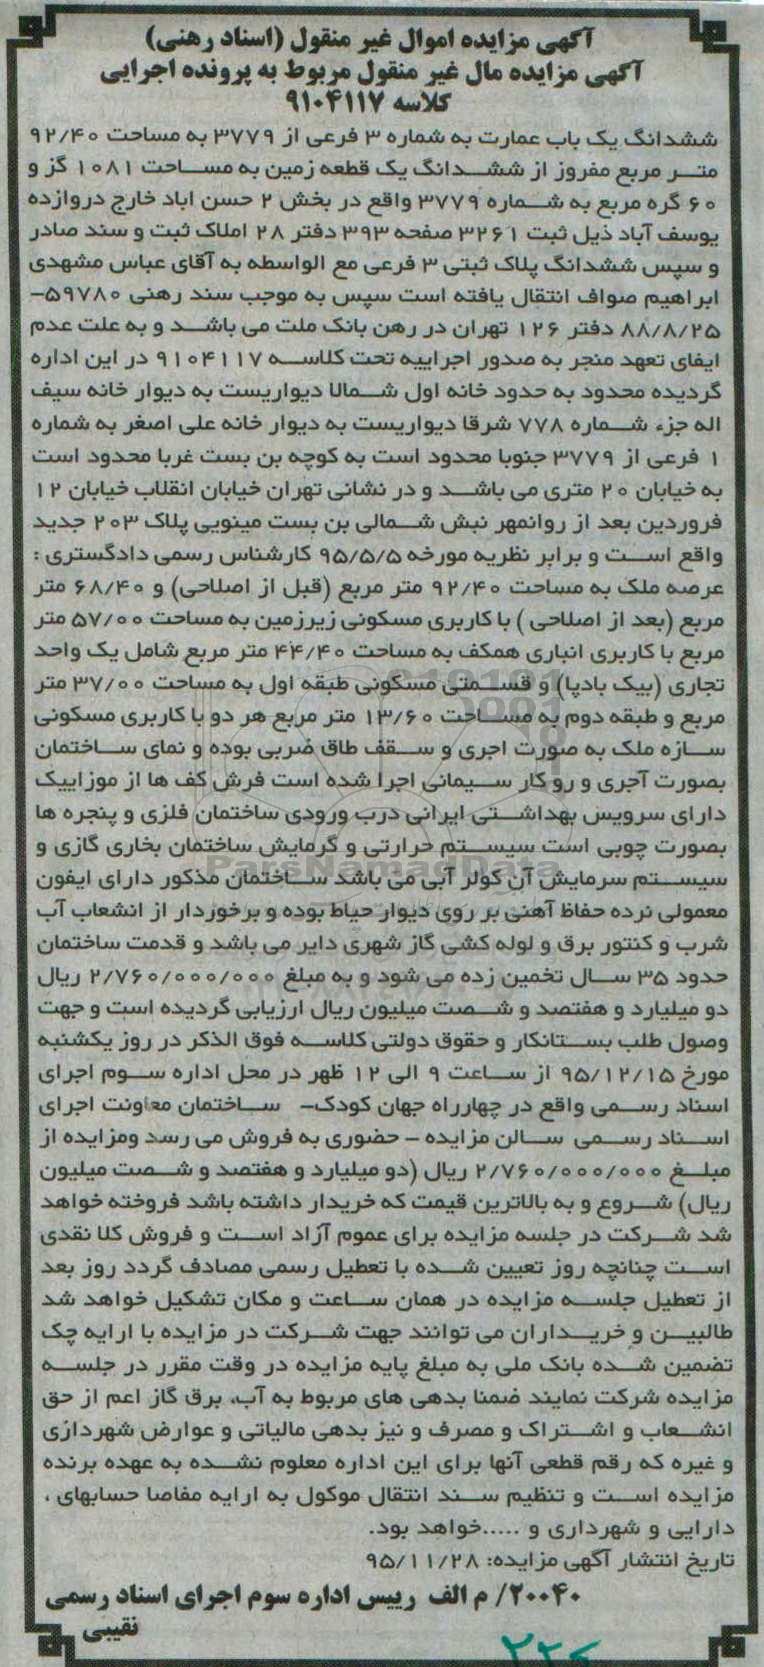 آگهی مزایده اموال غیر منقول (اسناد رهنی)
آگهی مزایده مال غیر منقول مربوط به پرونده اجرایی
کلاسه ۹۱۰۴۱۱۷
ششدانگ یک باب عمارت به شماره ۳ فرعی از ۳۷۷۹ به مساحت ۹۲/۴۰
متر مربع مفروز از ششدانگ یک قطعه زمین به مساحت ۱۰۸۱ گز و
۶۰ گره مربع به شماره ۳۷۷۹ واقع در بخش ۲ حسن اباد خارج دروازده
یوسف آباد ذیل ثبت ۳۲۶۱ صفحه ۳۹۳ دفتر ۲۸ املاک ثبت و سند صادر
و سپس ششدانگ پلاک ثبتی ۳ فرعی مع الواسطه به آقای عباس مشهدی
ابراهیم صواف انتقال یافته است سپس به موجب سند رهنی ۵۹۷۸۰-
۸۸/۸/۲۵ دفتر ۱۲۶ تهران در رهن بانک ملت می باشد و به علت عدم
ایفای تعهد منجر به صدور اجراییه تحت کلاسه ۹۱۰۴۱۱۷ در این اداره
گردیده محدود به حدود خانه اول شمالا دیواریست به دیوار خانه سیف
اله جزء شماره ۷۷۸ شرقا دیواریست به دیوار خانه علی اصغر به شماره
۱ فرعی از ۳۷۷۹ جنوبا محدود است به کوچه بن بست غربا محدود است
به خیابان ۲۰ متری می باشد و در نشانی تهران خیابان انقلاب خیابان ۱۲
فروردین بعد از روانمهر نبش شمالی بن بست مینویی پلاک ۲۰۳ جدید
واقع است و برابر نظریه مورخه ۹۵/۵/۵ کارشناس رسمی دادگستری :
عرصه ملک به مساحت ۹۲/۴۰ متر مربع (قبل از اصلاحی) و ۶۸/۴۰ متر
مربع (بعد از اصلاحی ) با کاربری مسکونی زیرزمین به مساحت ۵۷/۰۰ متر
مربع با کاربری انباری همکف به مساحت ۴۴/۴۰ متر مربع شامل یک واحد
تجاری (بیک بادپا) و قسمتی مسکونی طبقه اول به مساحت ۳۷/۰۰ متر
مربع و طبقه دوم به مساحت ۱۳/۶۰ متر مربع هر دو با کاربری مسکونی
سازه ملک به صورت اجری و سقف طاق ضربی بوده و نمای ساختمان
بصورت آجری و رو کار سیمانی اجرا شده است فرش کف ها از موزاییک
دارای سرویس بهداشتی ایرانی درب ورودی ساختمان فلزی و پنجره ها
بصورت چوبی است سیستم حرارتی و گرمایش ساختمان بخاری گازی و
سیستم سرمایش آن کولر آبی می باشد ساختمان مذکور دارای ایفون
معمولی نرده حفاظ آهنی بر روی دیوار حیاط بوده و برخوردار از انشعاب آب
شرب و کنتور برق و لوله کشی گاز شهری دایر می باشد و قدمت ساختمان
حدود ۳۵ سال تخمین زده می شود و به مبلغ ۲/۷۶۰/۰۰۰/۰۰۰ ریال
دو میلیارد و هفتصد و شصت میلیون ریال ارزیابی گردیده است و جهت
وصول طلب بستانکار و حقوق دولتی کلاسه فوق الذکر در روز یکشنبه
مورخ ۹۵/۱۲/۱۵ از ساعت ۹ الی ۱۲ ظهر در محل اداره سوم اجرای
اسناد رسمی واقع در چهارراه جهان کودک- ساختمان معاونت اجرای
اسناد رسمی سالن مزایده - حضوری به فروش می رسد ومزایده از
مبلغ ۲/۷۶۰/۰۰۰/۰۰۰ ریال (دو میلیارد و هفتصد و شصت میلیون
ریال) شروع و به بالاترین قیمت که خریدار داشته باشد فروخته خواهد
شد شرکت در جلسه مزایده برای عموم آزاد است و فروش کلا نقدی
است چنانچه روز تعیین شده با تعطیل رسمی مصادف گردد روز بعد
از تعطیل جلسه مزایده در همان ساعت و مکان تشکیل خواهد شد
طالبین و خریداران می توانند جهت شرکت در مزایده با ارایه چک
تضمین شده بانک ملی به مبلغ پایه مزایده در وقت مقرر در جلسه
مزایده شرکت نمایند ضمنا بدهی های مربوط به آب، برق گاز اعم از حق
انشعاب و اشتراک و مصرف و نیز بدهی مالیاتی و عوارض شهرداری
و غیره که رقم قطعی آنها برای این اداره معلوم نشده به عهده برنده
مزایده است و تنظیم سند انتقال موکول به ارایه مفاصا حسابهای ،
دارایی و شهرداری و .....خواهد بود.
تاریخ انتشار آگهی مزایده: ۹۵/۱۱/۲۸
۲۰۰۴۰/ م الف رییس اداره سوم اجرای اسناد رسمی
نقیبی
ParsNamadData